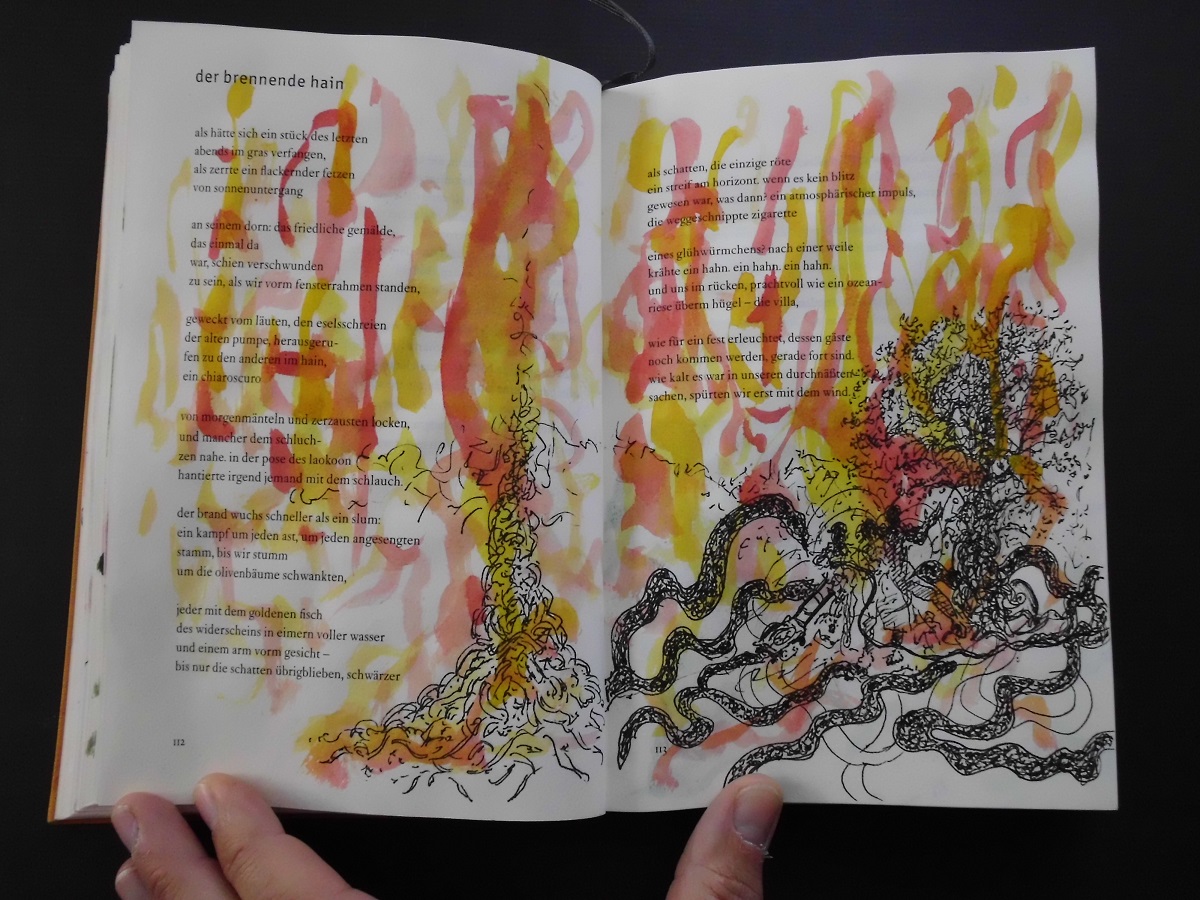 der brennende hain
als hätte sich ein stück des letzten
abends im gras verfangen,
als zerrte ein flackernder fetzen
von sonnenuntergang
an seinem dorn: das friedliche gemälde,
das einmal da
war, schien verschwunden
zu sein, als wir vorm fensterrahmen standen,
geweckt vom läuten, den eselsschreien
der alten pumpe, herausgeru-
fen zu den anderen im hain,
ein chiaroscuro
von morgenmänteln und zerzausten locken,
und mancher dem schluch-
zen nahe. in der pose des laokoon
hantierte irgend jemand mit dem schlauch.
der brand wuchs schneller als ein slum:
ein kampf um jeden ast, um jeden angesengten
stamm, bis wir stumm
um die olivenbäume schwankten,
jeder mit dem goldenen fisch
des widerscheins in eimern voller wasser
und einem arm vorm gesicht –
bis nur die schatten übrigblieben, schwärzer
112
als schatten, die einzige röte
ein streif am horizont. wenn es kein blitz
gewesen war, was dann? ein atmosphärischer impuls,
die weggeschnippte zigarette
eines glühwürmchens? nach einer weile
krähte ein hahn. ein hahn. ein hahn.
und uns im rücken, prachtvoll wie ein ozean-
riese überm hügel – die villa,
wie für ein fest erleuchtet, dessen gäste
noch kommen werden, gerade fort sind.
wie kalt es war in unseren durchnäßten
sachen, spürten wir erst mit dem wind.
113